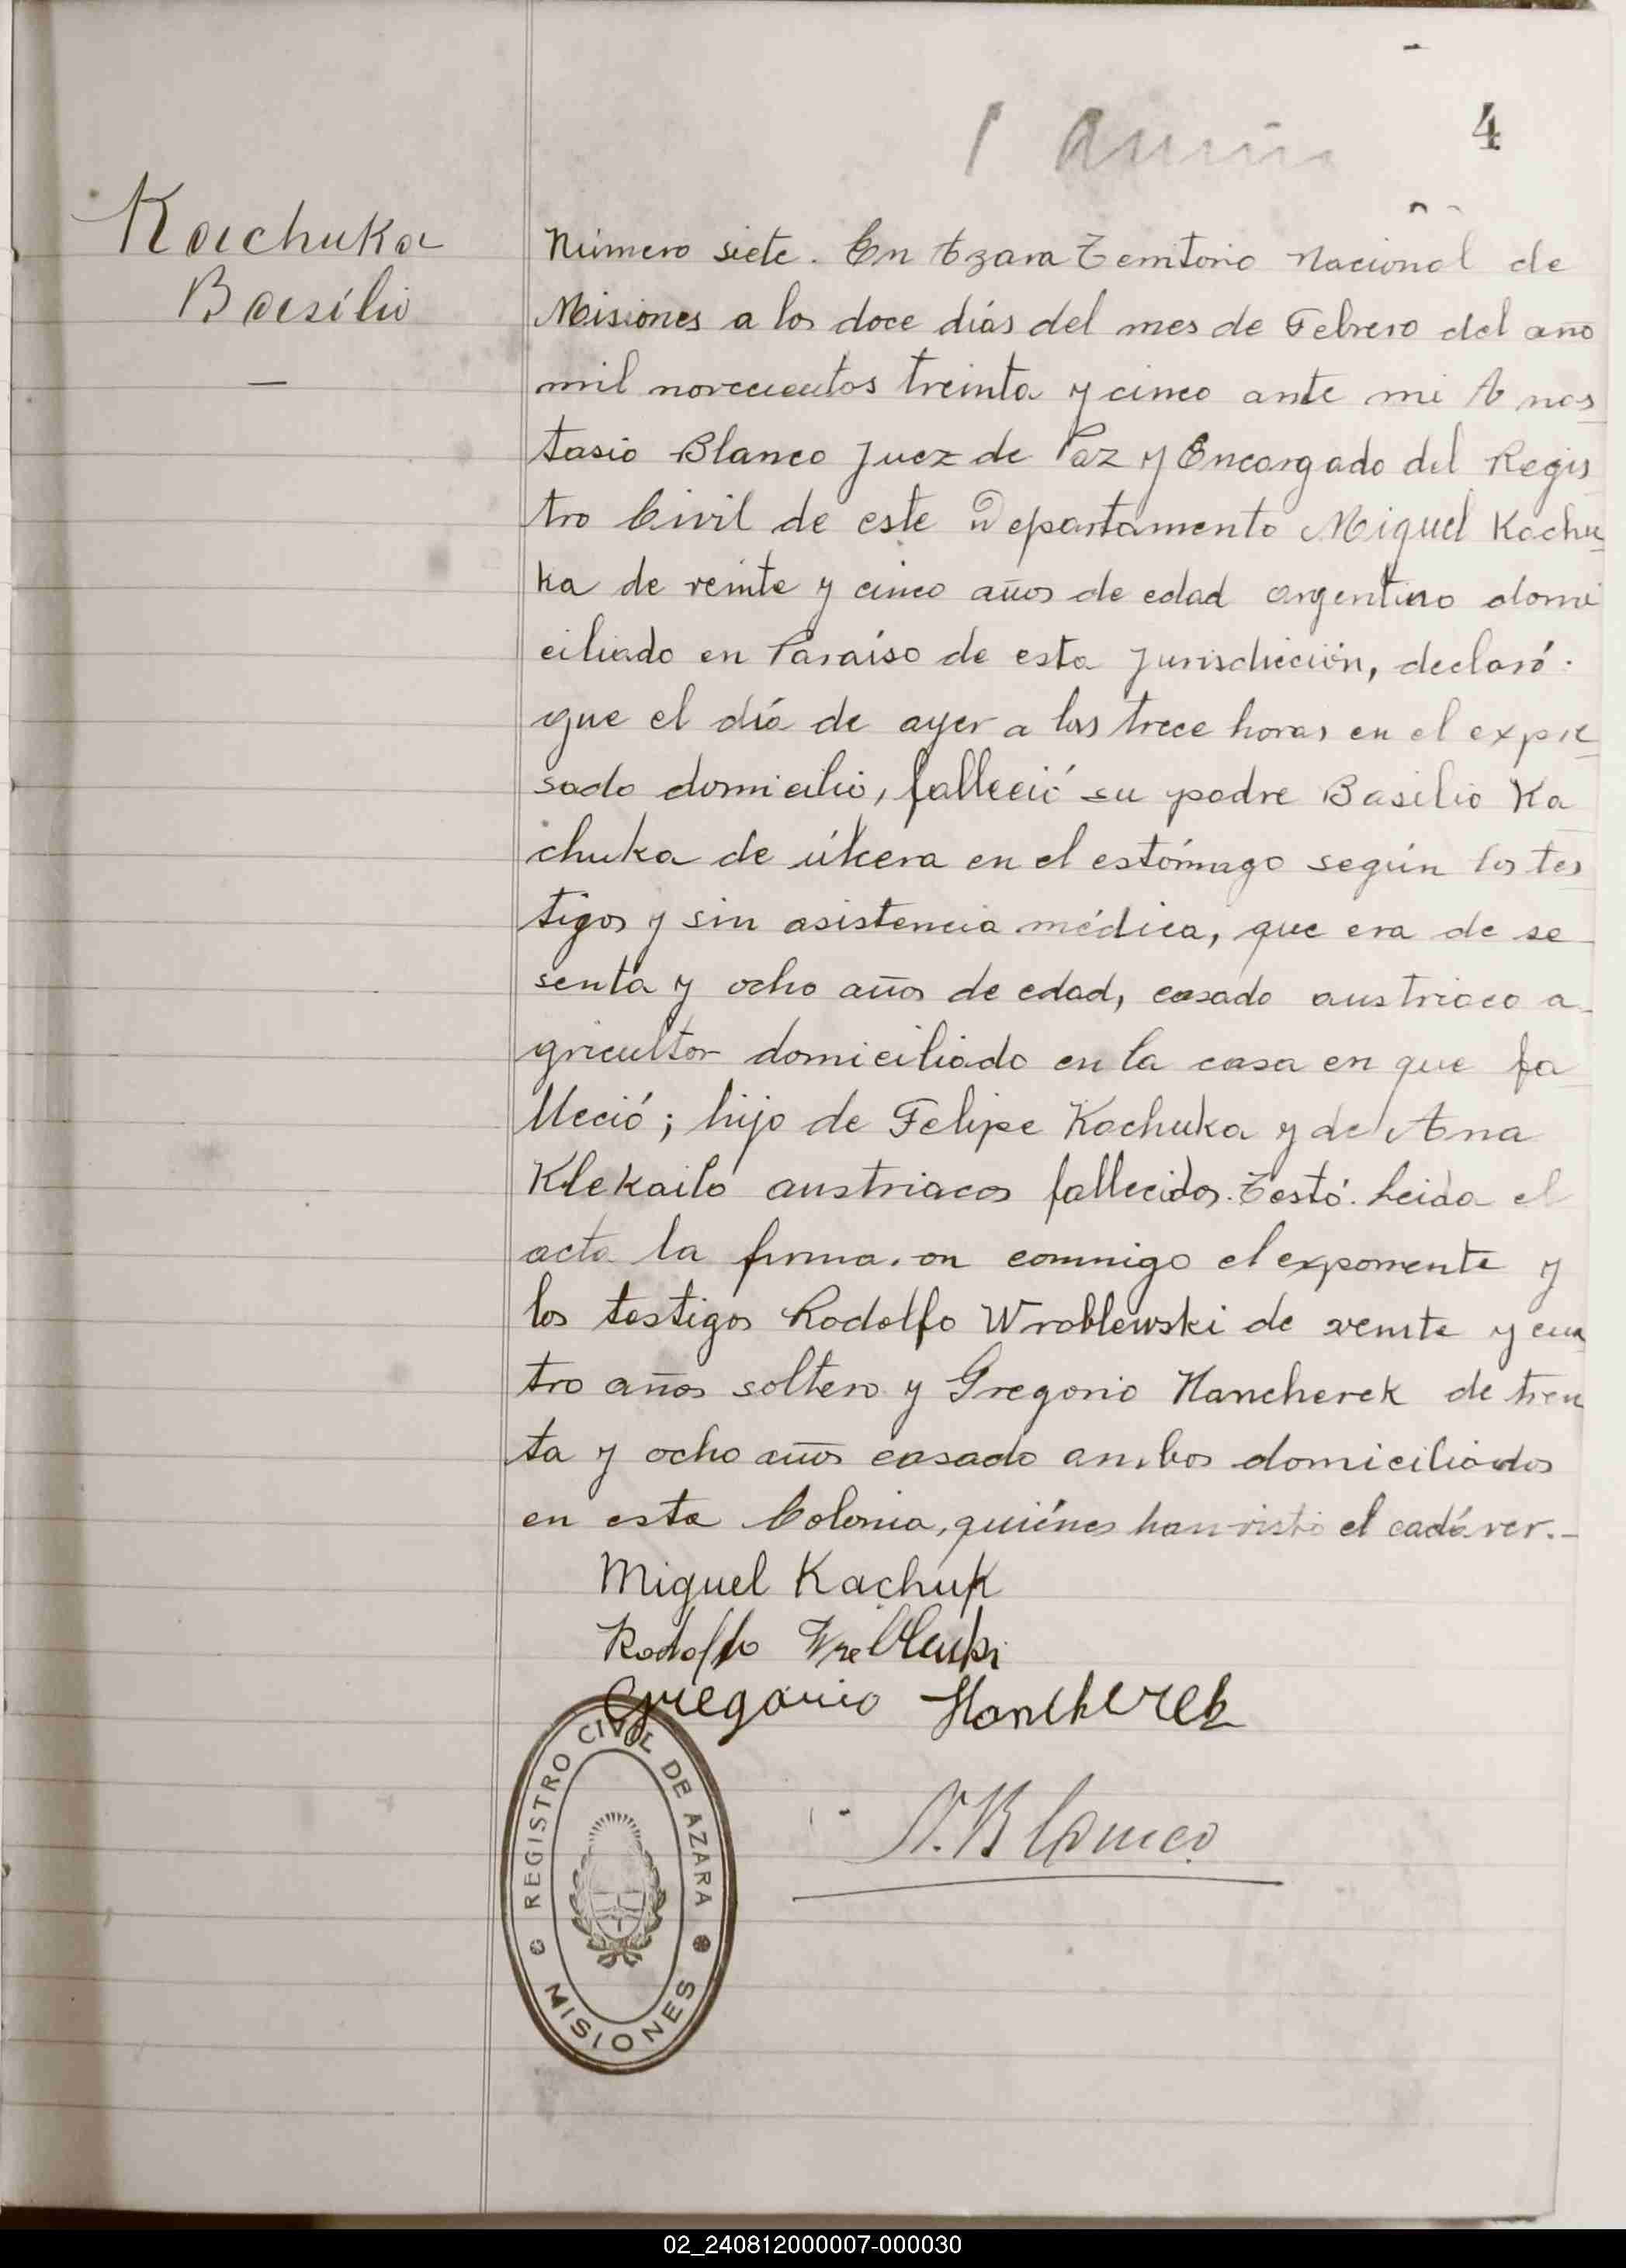 4
Kachuka
Basilio
Número siete. En Azara Territorio Nacional de
Misiones a los doce días del mes de Febrero del año
mil novecientos treinta y cinco ante mi Anas
tasio Blanco Juez de Paz y Encargado del Regis
tro Civil de este Departamento Miguel Kachu
ka de veinte y cinco años de edad argentino domi
ciliado en Paraíso de esta Jurisdicción, declaró:
que el día de ayer a las trece horas en el expre
sado domicilio, falleció su padre Basilio Ka
chuka de úlcera en el estómago según los tes
tigos y sin asistencia médica, que era de se
senta y ocho años de edad, casado austriaco a
gricultor domiciliado en la casa en que fa
lleció; hijo de Felipe Kachuka y de Ana
Klekailo austriacos fallecidos. Testó. Leida el
acta la firma.on conmigo el exponente y
los testigos Rodolfo Wroblewski de veinte y cua
tro años soltero y Gregorio Hancherek de trein
ta y ocho años casado ambos domiciliados
en esta Colonia, quiénes han visto el cadáver.-
Miguel Kachuk
Rodolfo
Gregorio Hancherek
A. Blanco
REGISTRO CIVIL DE AZARA
MISIONES
02_240812000007-000030